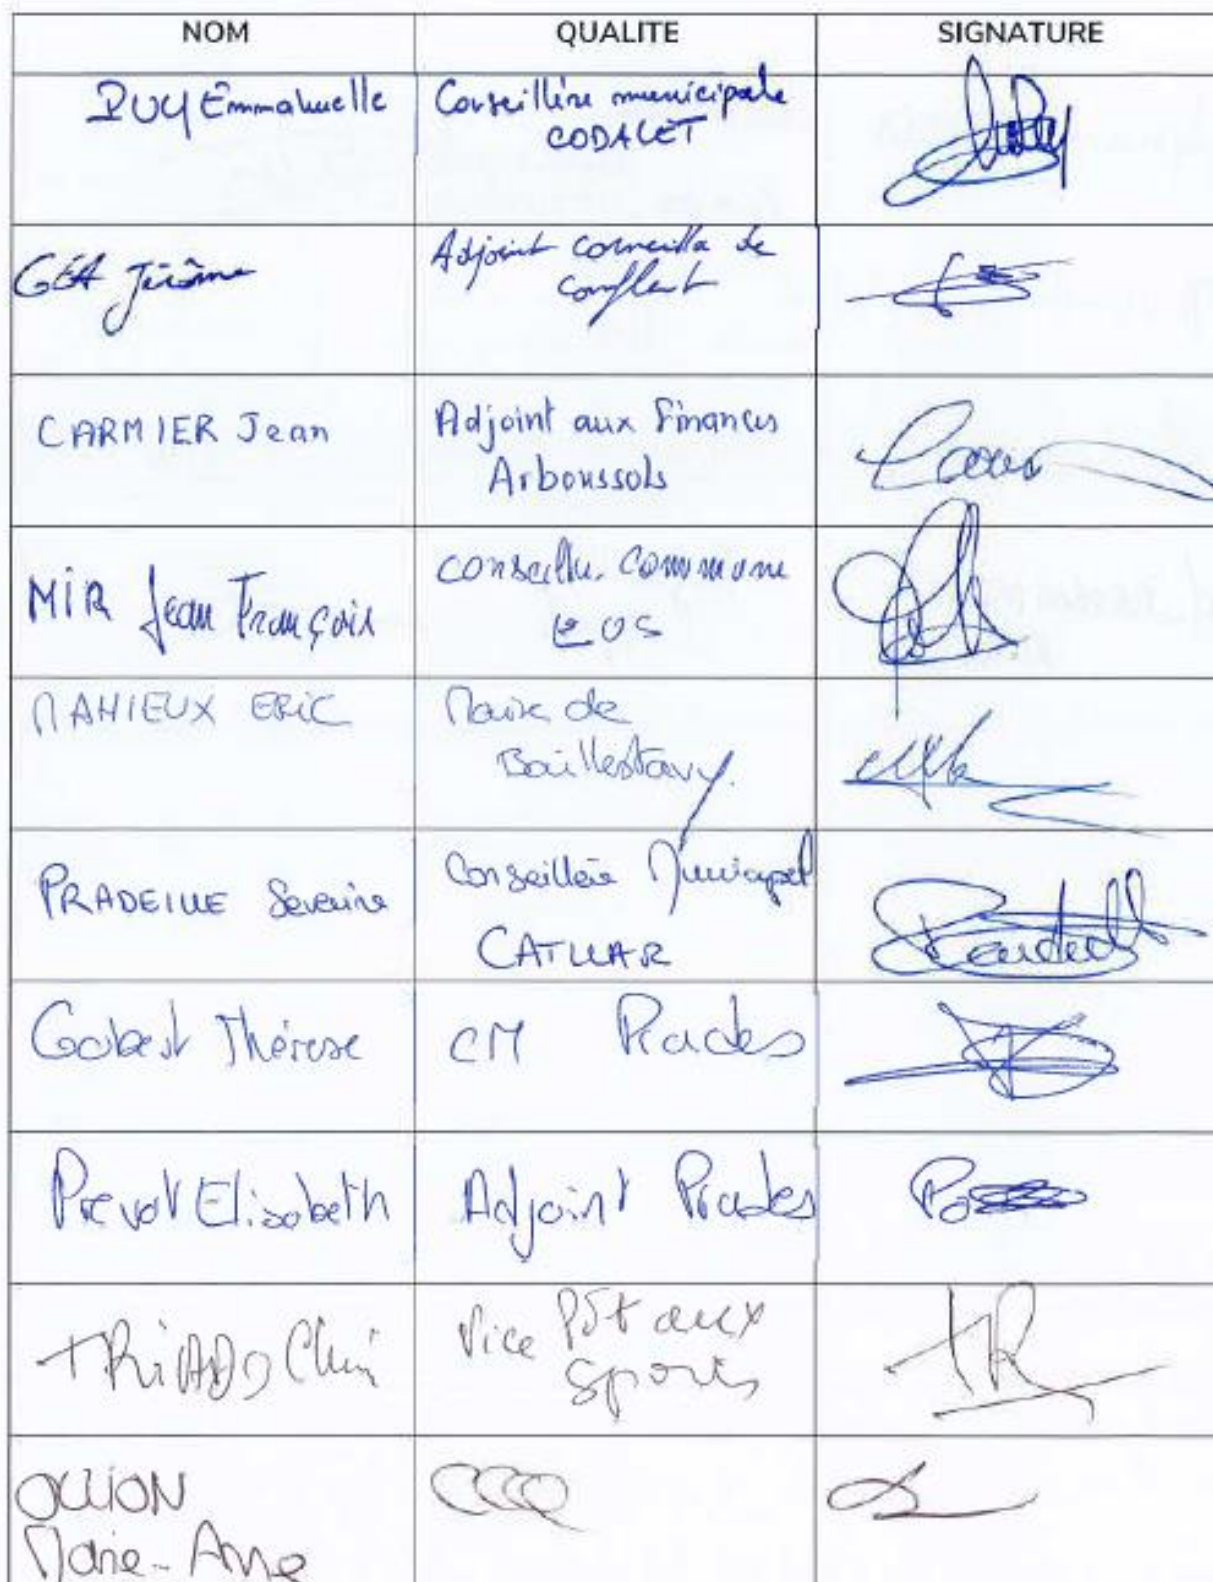 NOM QUALITE SIGNATURE
PUY Emmanuelle Conseillère municipale
CODALET
GEA Jérôme Adjoint Corneilla de
Conflent
CARMIER Jean Adjoint aux Finances
Arboussols
MIR Jean François Conseiller Commune
EUS
MAHIEUX ERIC Maire de
Baillestavy.
PRADEILLE Severine Conseillère Municipal
CATLLAR
Gobert Thérèse CM Prades
Prevot Elisabeth Adjoint Prades
TRIADO Vice Pdt aux
Sports
OLLION
Marie-Anne